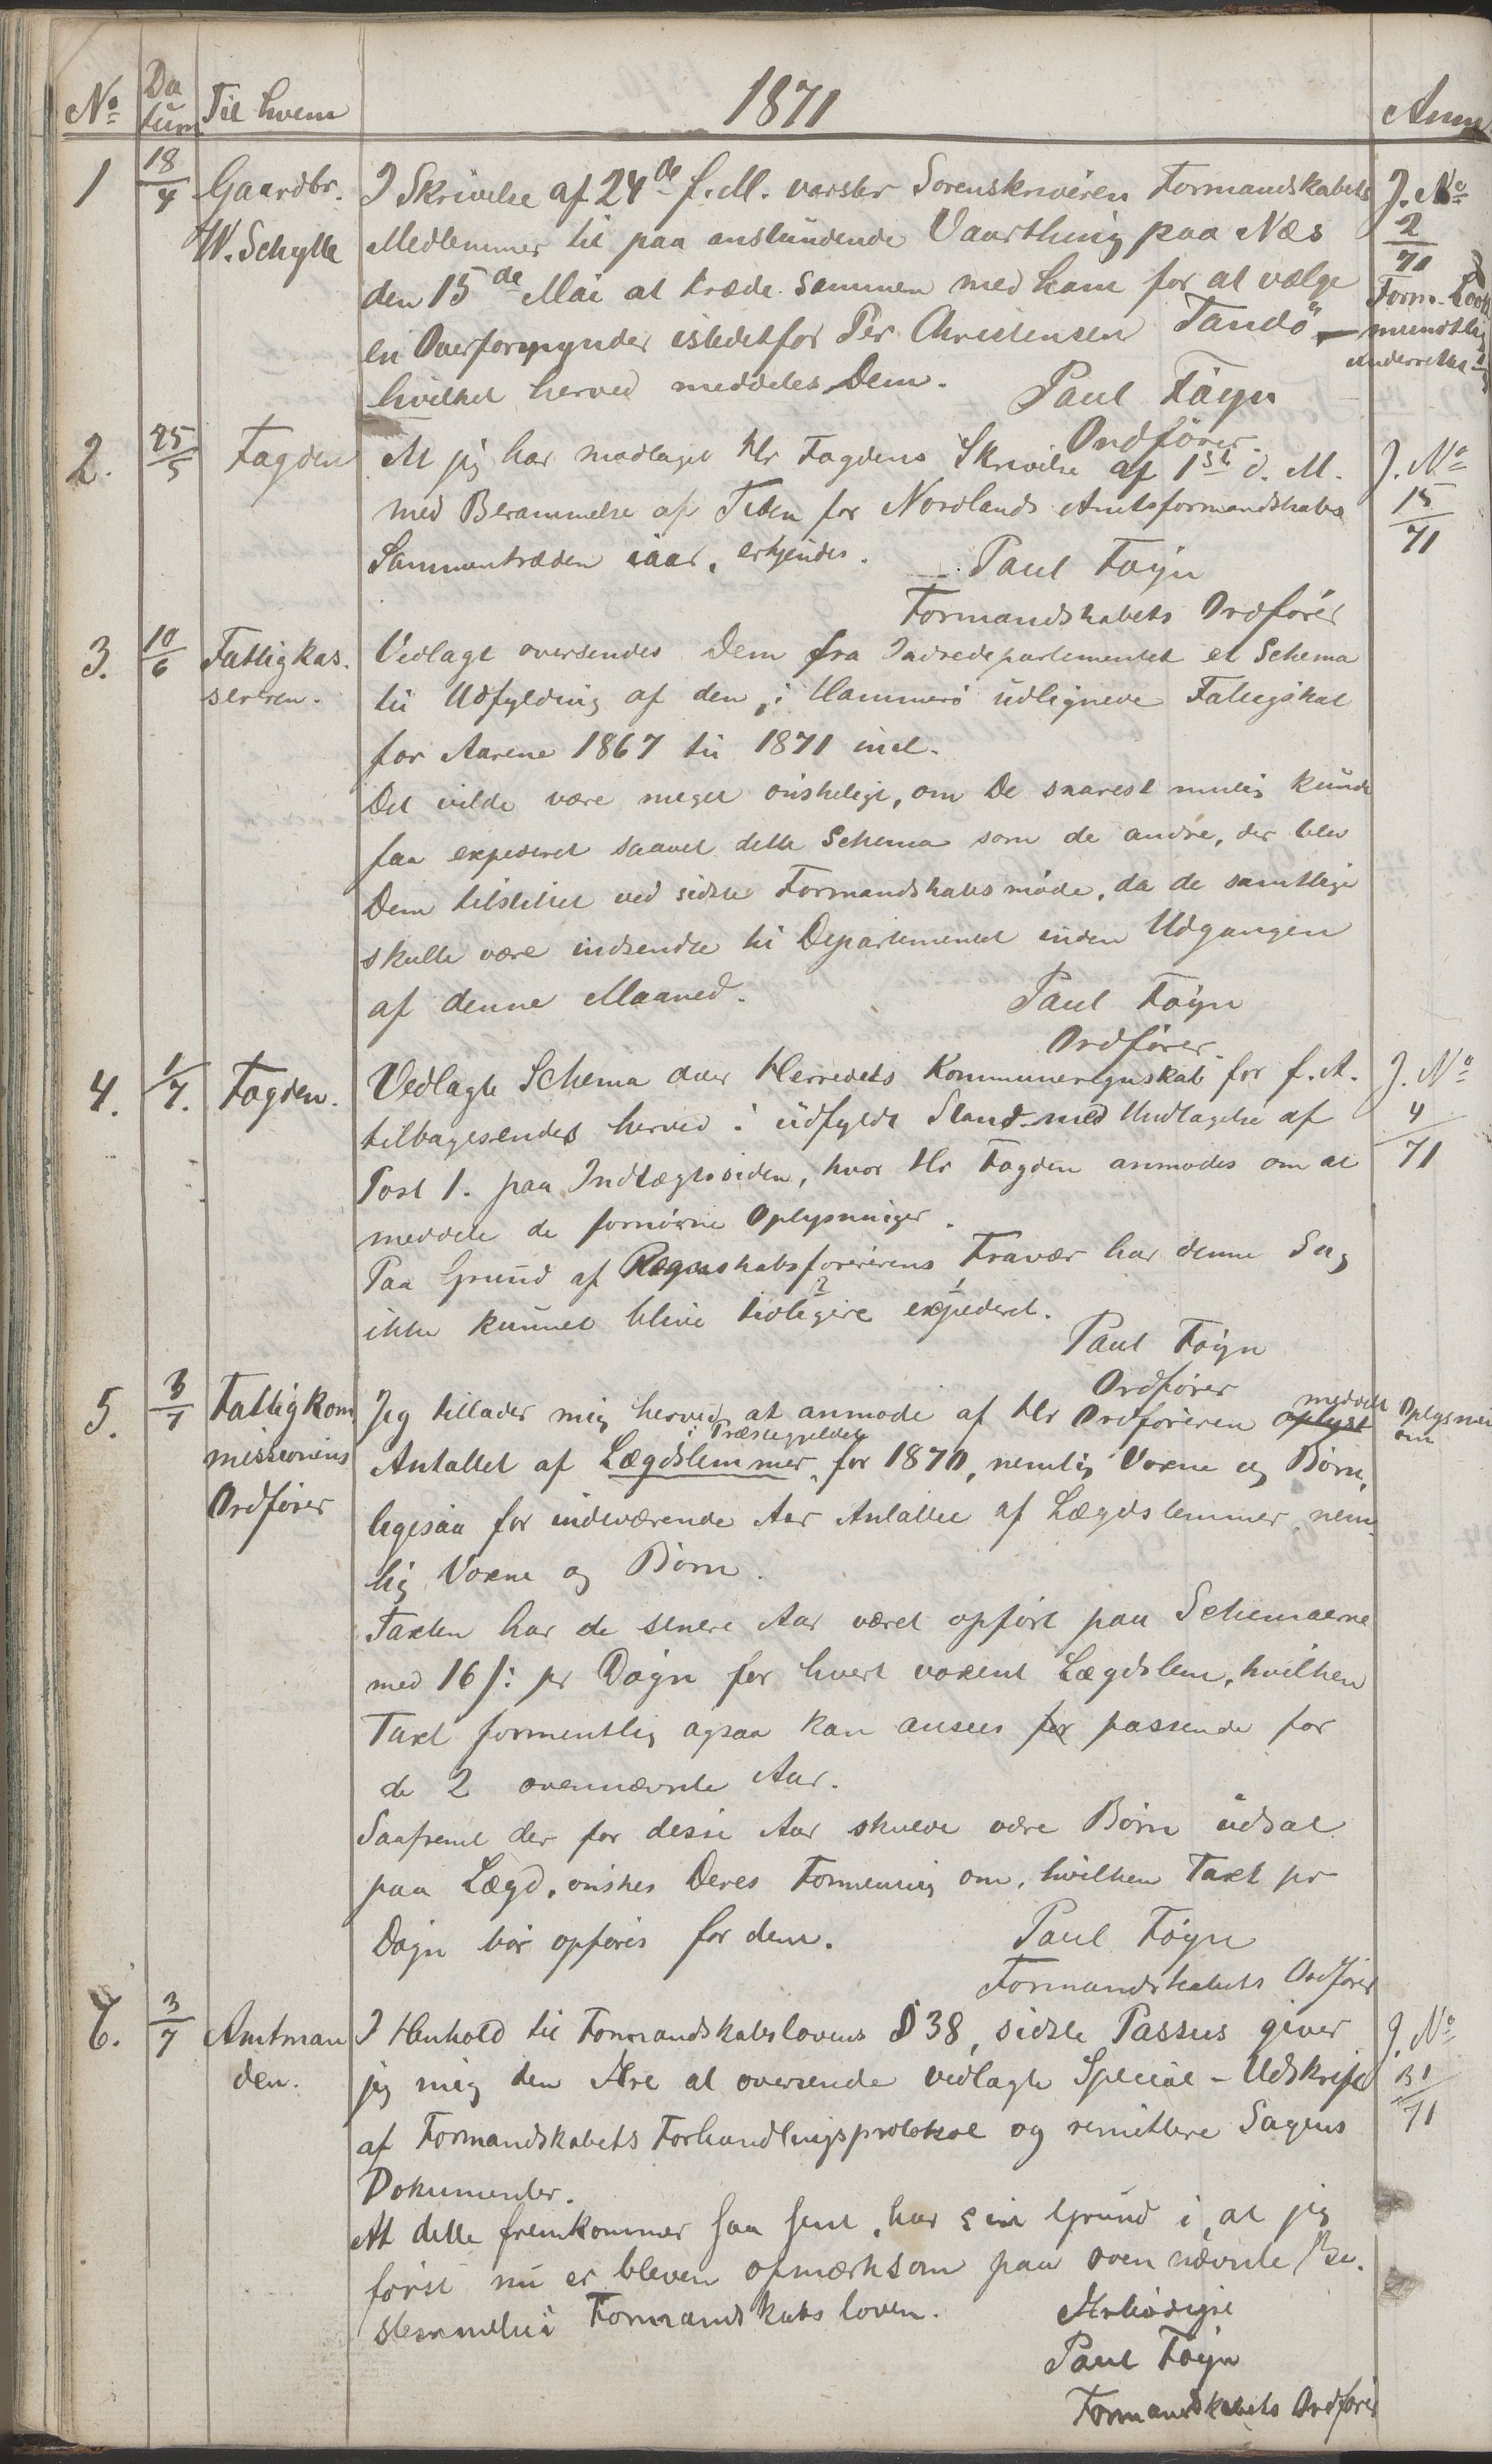 No Da tum Til hvem 1871 Anm
1 18/4 Gaardbr. I Skrivelse af 24de f. M. varsler Sorenskriveren Formandskabets J. No
W. Schytte Medlemmer til paa anstundende Vaarthing paa Næs 2/71
den 15de Mai at træde sammen med ham for at vælge Form.
en Overformynder istedetfor Per Christensen Tandö — mundtlig
hvilket herved meddeles Dem. underrettet
Paul Föyn
Ordförer.
2. 25/5 Fogden At jeg har modtaget Hr Fogdens Skrivelse af 1ste d. M. J. No
med Berammelse af Tiden for Nordlands Amtsformandskabs 15/71
Sammentræden iaar, erkjendes. Paul Föyn
Formandskabets Ordförer
3. 10/6 Fattigkas. Vedlagt oversendes Dem fra Indredepartementet et Schema
sereren. til Udfylding af den i Hammerö udlignede Fattigskat
for Aarene 1867 til 1871 incl.
Det vilde være meget önskeligt, om De snarest mulig kunde
faa expederet saavel dette Schema som de andre, der blev
Dem tilstillet ved sidste Formandskabsmöde, da de samtlige
skulle være indsendte til Departementet inden Udgangen
af denne Maaned. Paul Föyn
Ordförer.
4. 1/7. Fogden. Vedlagte Schema over Herredets Kommuneregnskab for f. A. J. No
tilbagesendes herved i udfyldt Stand med Undtagelse af 4/71
Post 1. paa Indtægtssiden, hvor Hr Fogden anmodes om at
meddele de fornödne Oplysninger.
Paa Grund af Regnskabsförerens Fravær har denne Sag
ikke kunnet blive tidligere expederet.
Paul Föyn
Ordförer
5. 3/7 Fattigkom Jeg tillader mig herved at anmode af Hr Ordföreren oplyst meddelt Oplysning om
missionens Antallet af Lægdslemmer i Præstegjeldet for 1870, nemlig Voxne og Börn,
Ordförer ligesaa for indeværende Aar Antallet af Lægdslemmer, nem-
lig Voxne og Börn.
Taxten har de senere Aar været opfört paa Schemaerne
med 16 s: pr Dögn for hvert voxent Lægdslem, hvilken
Taxt formentlig ogsaa kan ansees for passende for
de 2 ovennævnte Aar.
Saafremt der for disse Aar skulde være Börn udsat
paa Lægd, önskes Deres Formening om, hvilken Taxt pr
Dögn bör opföres for dem. Paul Föyn
Formandskabets Ordförer
6. 3/7 Amtman I Henhold til Formandskabslovens § 38, sidste Passus giver J. No
den. jeg mig den Ære at oversende vedlagte Special-Udskrift 31/71
af Formandskabets Forhandlingsprotokol og remittere Sagens
Dokumenter.
At dette fremkommer saa sent, har sin Grund i, at jeg
först nu er bleven opmærksom paa ovennævnte Be-
stemmelse i Formandskabsloven. Ærbödigst
Paul Föyn
Formandskabets Ordförer